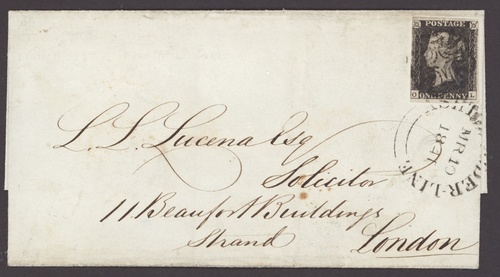 POSTAGE
O ONE PENNY L
ASHTON-UNDER-LINE
MR 10
1841
L. L. Lucena Esq
Solicitor
11 Beaufort Buildings
Strand
London